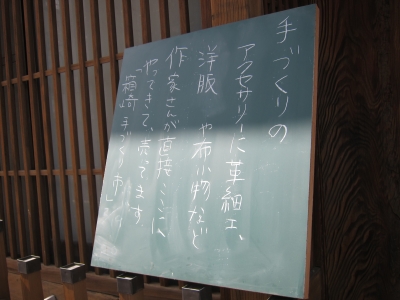 手づくりの
アクセサリーに革細工、
洋服 や布小物など
作家さんが直接ここに
やってきて、売ってます
「箱崎手づくり市」